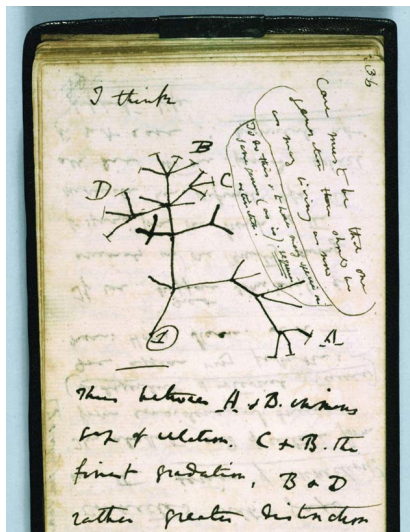 36
I think
Case must be that one
generation then should be
as many living as now
To do this & to have many species in
same genus (as is) requires
extinction
B
C
D
A
1
Thus between A & B. immens
gap of relation. C & B. the
finest gradation, B & D
rather greater distinction